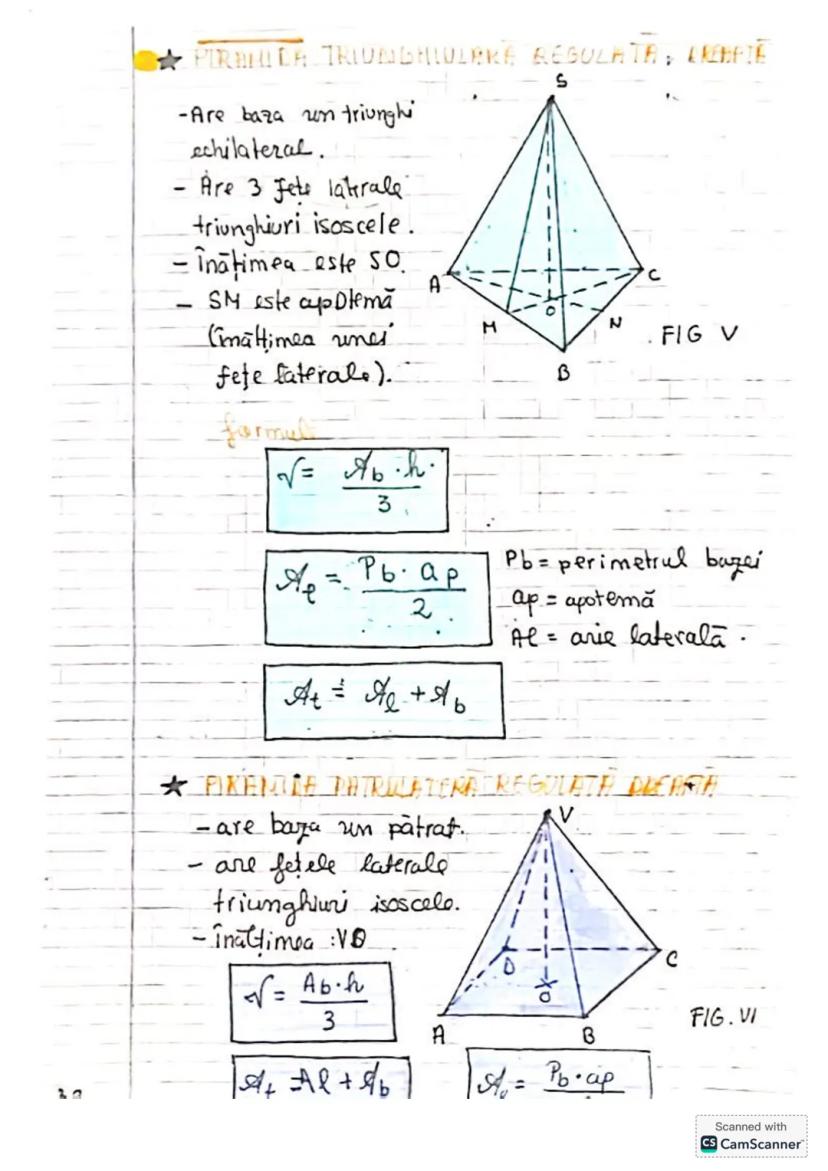 ★ PIRAMIDA TRIUNGHIULARĂ REGULATĂ, DREAPTĂ
S
-Are baza un triunghi
echilateral.
- Are 3 fețe laterale
triunghiuri isoscele.
- Înățimea este SO.
- SM este apotemă
(înălțimea unei
fețe laterale).
A
C
O
M
N
B
FIG V
formul
V = Ab · h / 3
Al = Pb · ap / 2
Pb = perimetrul bazei
ap = apotemă
Al = arie laterală.
At = Al + Ab
★ PIRAMIDA PATRULATERĂ REGULATĂ DREAPTĂ
V
- are baza un pătrat.
- are fețele laterale
triunghiuri isoscele.
- înălțimea : VO
D
C
O
A
B
FIG. VI
V = Ab · h / 3
At = Al + Ab
Al = Pb · ap
Scanned with
CS CamScanner